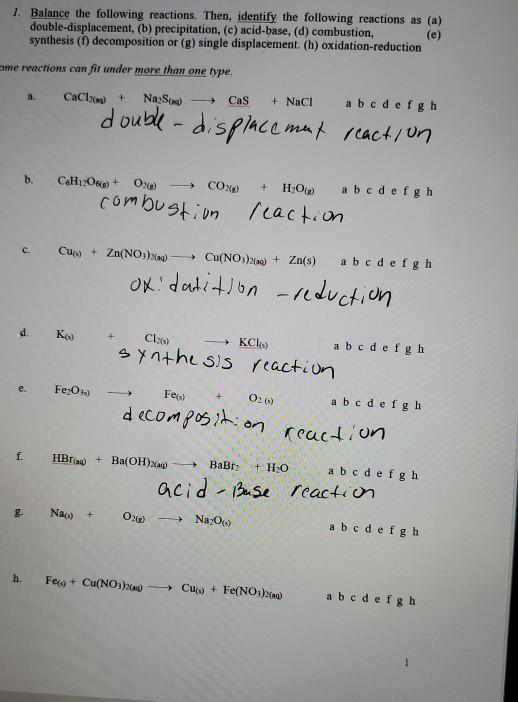 1. Balance the following reactions. Then, identify the following reactions as (a)
double-displacement, (b) precipitation, (c) acid-base, (d) combustion, (e)
synthesis (f) decomposition or (g) single displacement. (h) oxidation-reduction
ome reactions can fit under more than one type.
a. CaCl₂(aq) + Na₂S(aq) → CaS + NaCl a b c d e f g h
double-displacement reaction
b. C₆H₁₂O₆(g) + O₂(g) → CO₂(g) + H₂O(g) a b c d e f g h
combustion reaction
c. Cu(s) + Zn(NO₃)₂(aq) → Cu(NO₃)₂(aq) + Zn(s) a b c d e f g h
oxidatition - reduction
d. K(s) + Cl₂(s) → KCl(s) a b c d e f g h
synthesis reaction
e. Fe₂O₃(s) → Fe(s) + O₂(s) a b c d e f g h
decomposition reaction
f. HBr(aq) + Ba(OH)₂(aq) → BaBr₂ + H₂O a b c d e f g h
acid - Base reaction
g. Na(s) + O₂(g) → Na₂O(s) a b c d e f g h
h. Fe(s) + Cu(NO₃)₂(aq) → Cu(s) + Fe(NO₃)₂(aq) a b c d e f g h
1